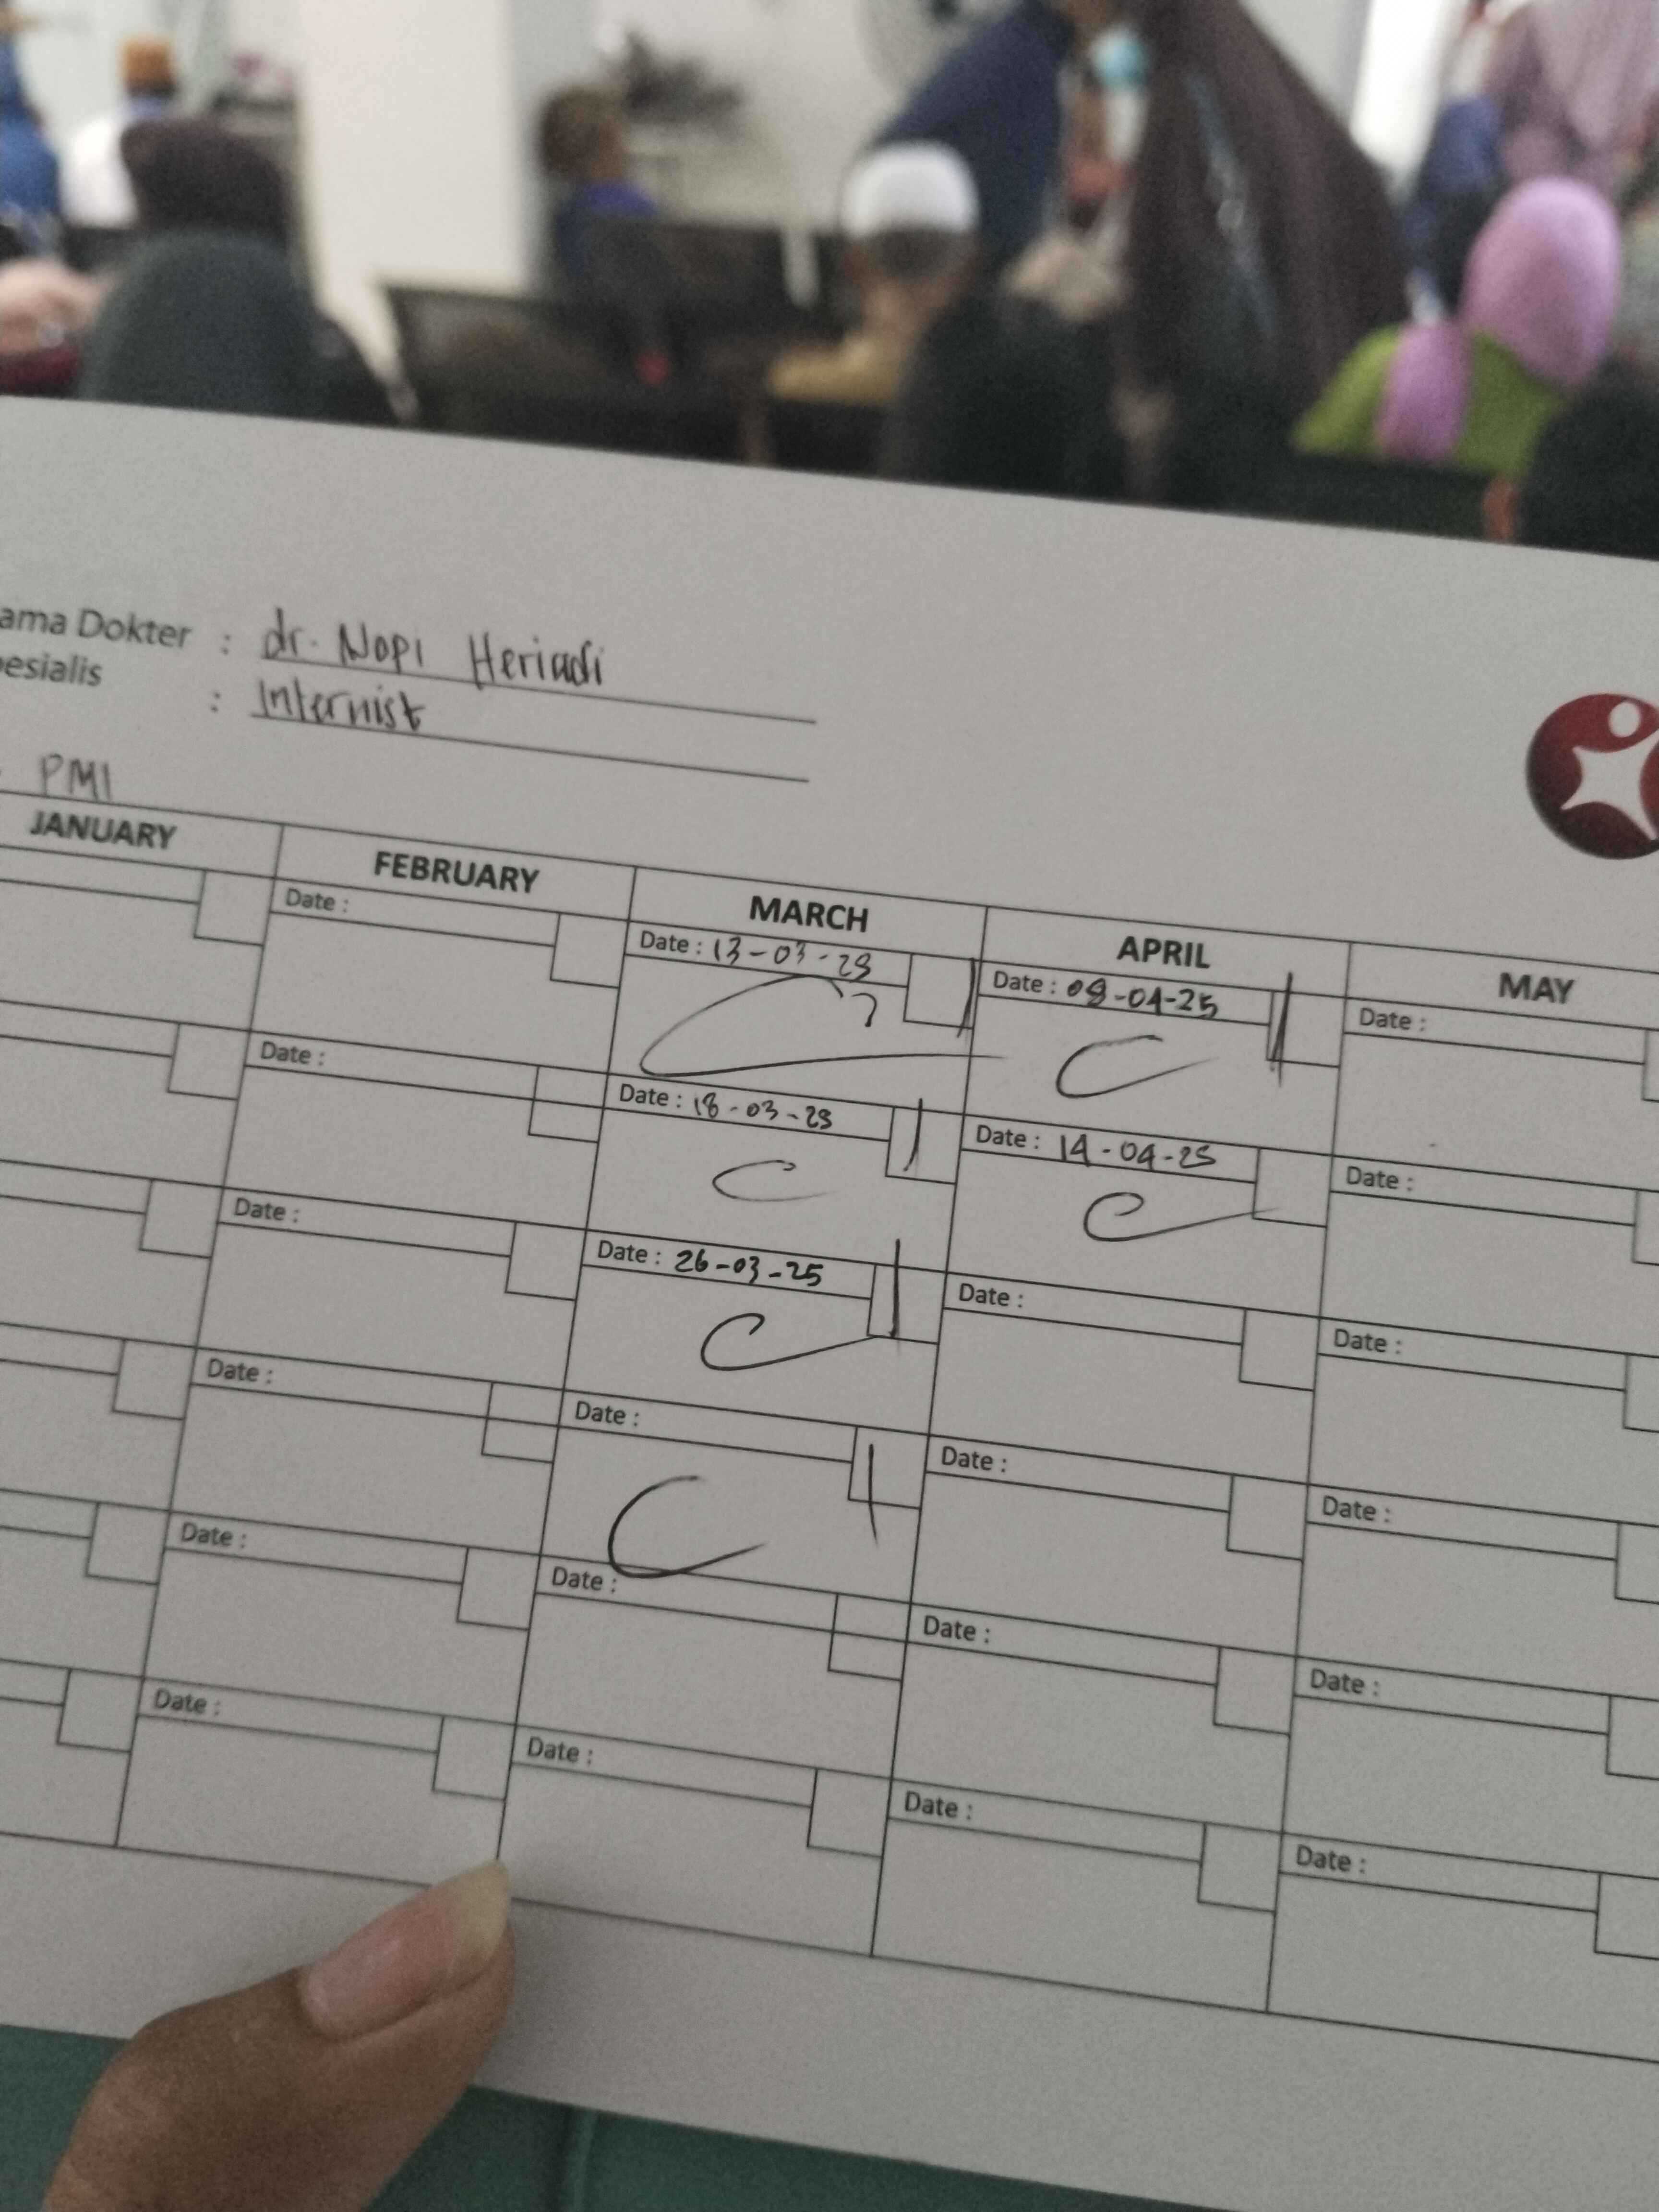 ama Dokter : dr. Nopi Heriadi
esialis : Internist
PMI
JANUARY FEBRUARY MARCH APRIL MAY
Date : Date : 13-03-25 Date : 08-04-25 Date :
Date : Date : 18-03-25 Date : 14-04-25 Date :
Date : Date : 26-03-25 Date : Date :
Date : Date : Date : Date :
Date : Date : Date : Date :
Date : Date : Date : Date :